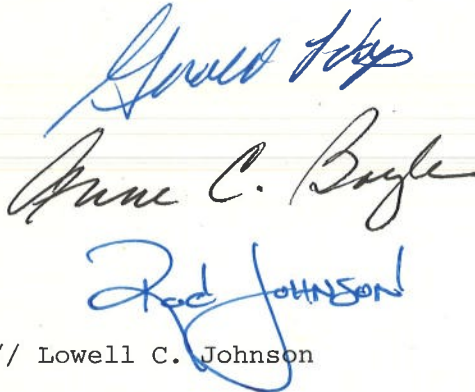 Gerald
Anne C. Boyle
Rod JOHNSON
// Lowell C. Johnson